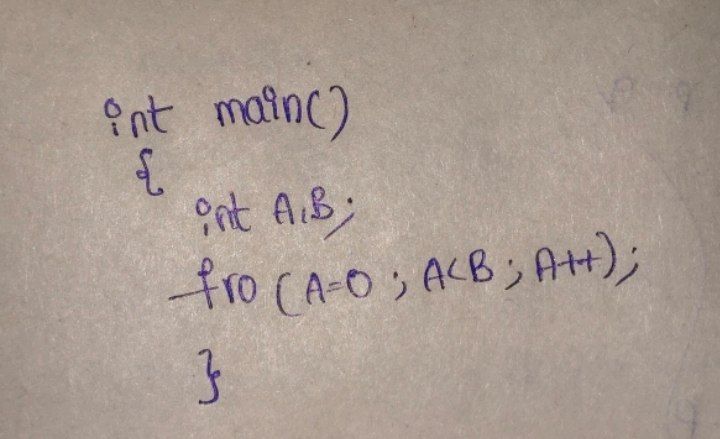 int main()
{
int A,B;
fro (A=0; A<B; A++);
}